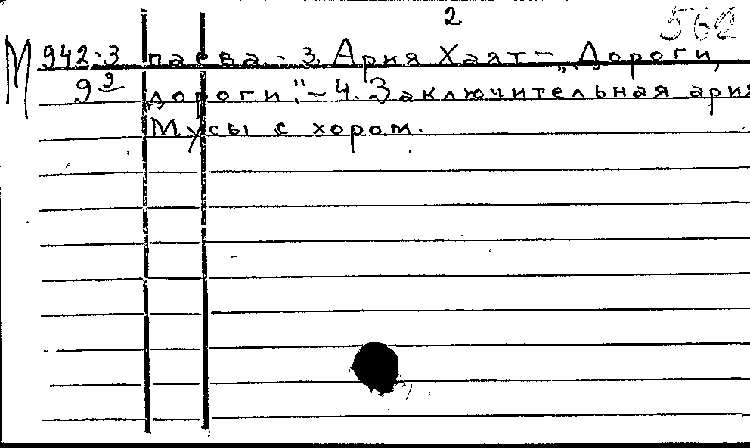 2
560
М 942-3 паева - 3. Ария Хаят - „Дороги,
9 9 дороги". - 4. Заключительная ария
Мусы с хором.